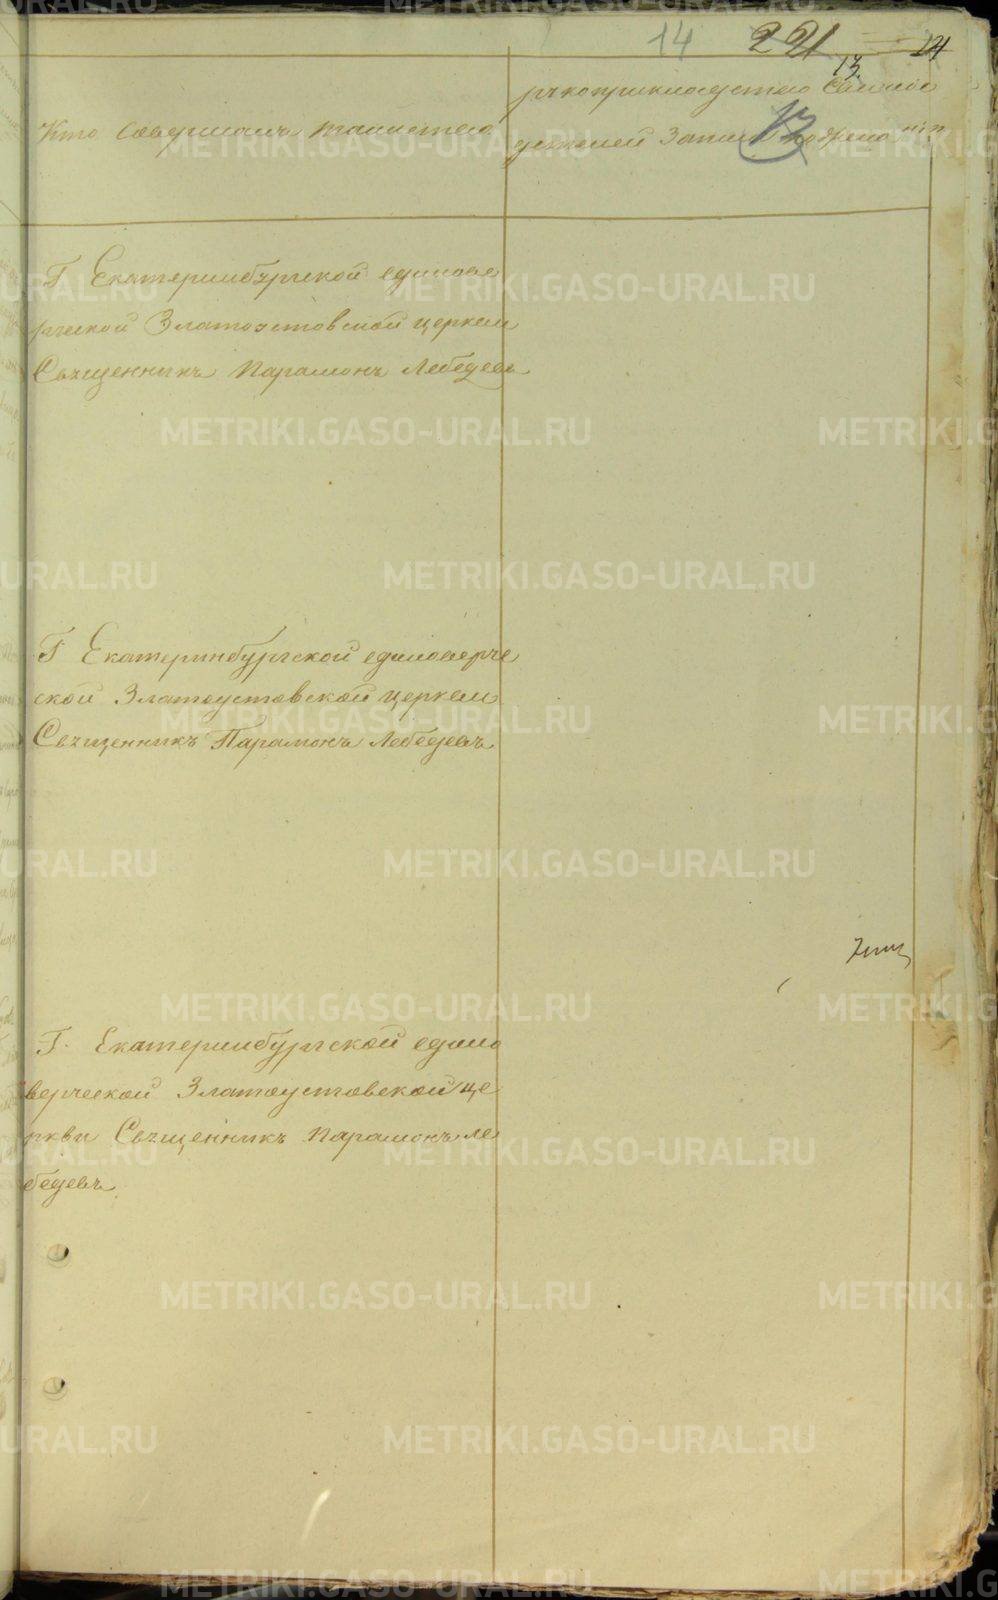 14 221 14
13.
13
Кто Совершалъ таинство
рукоприкладство Свиде
детелей Записи
Г Екатеринбургской единове
рческой Златоустовской церкви
Священникъ Парамонъ Лебедевъ
Г Екатеринбургской единоверче
ской Златоустовской церкви
Священникъ Парамонъ Лебедевъ
Г. Екатеринбургской едино
верческой Златоустовской це
ркви Священникъ Парамонъ Ле
бедевъ
METRIKI.GASO-URAL.RU